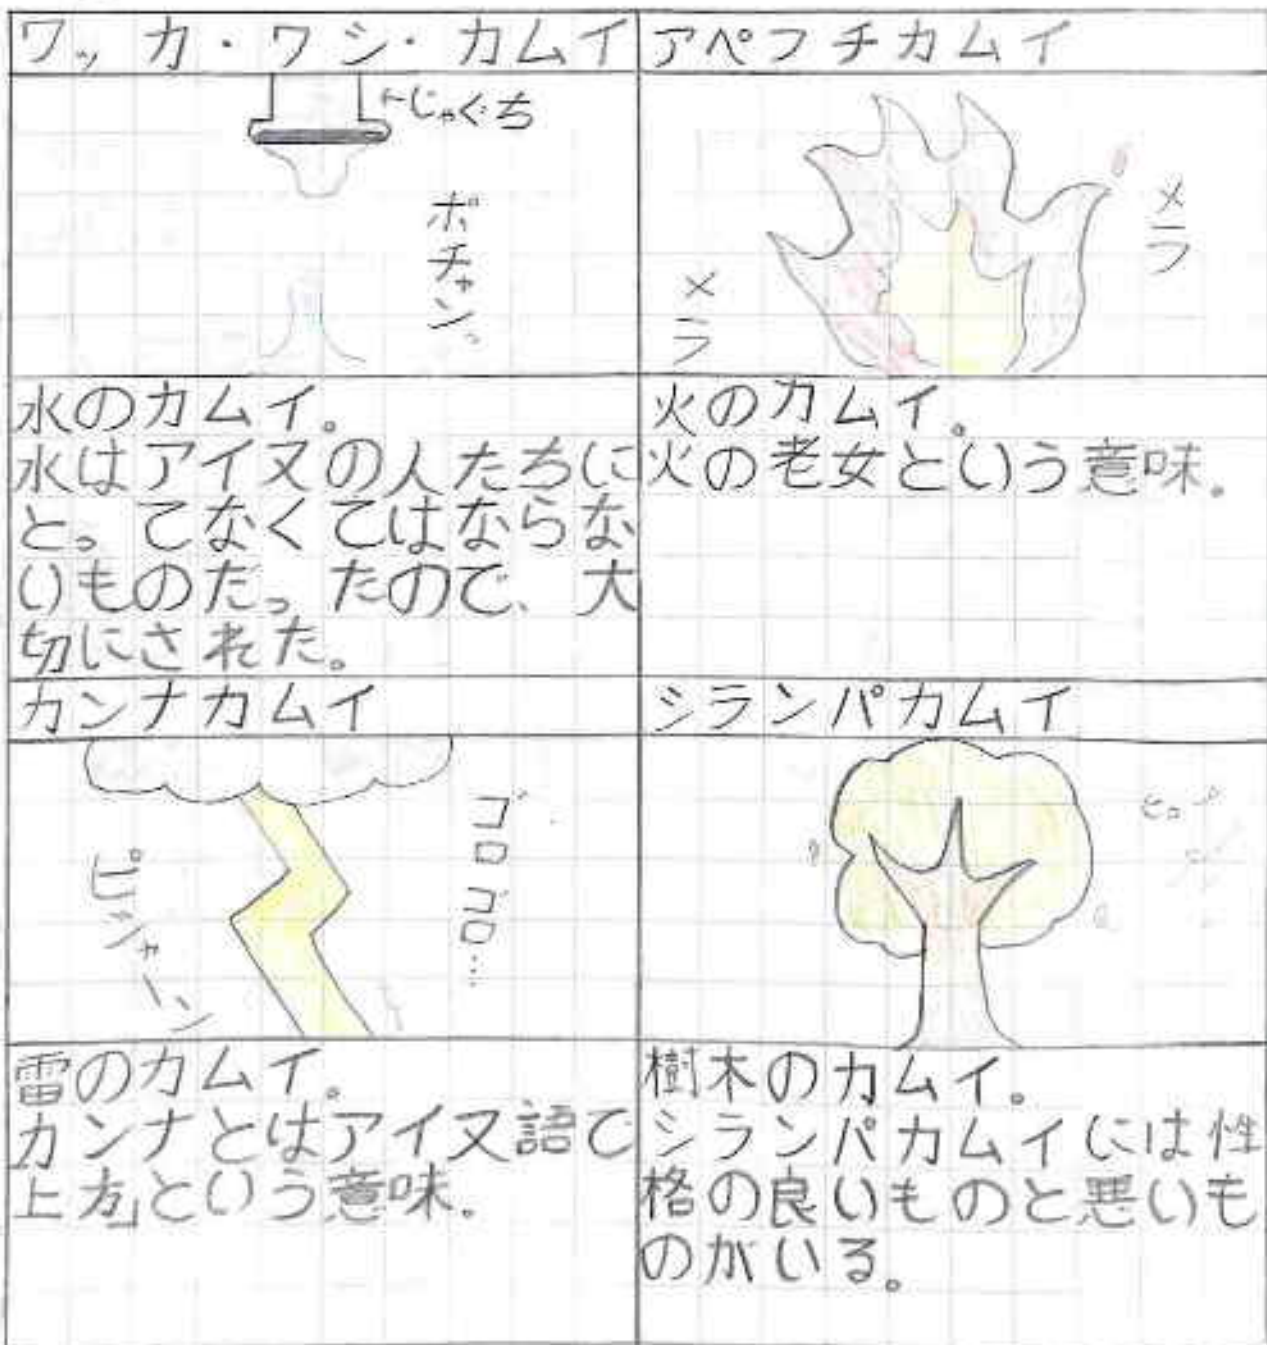 ワッカ・ワシ・カムイ
←じゃぐち
ポチャン。
水のカムイ。
水はアイヌの人たちに
とってなくてはならな
いものだったので、大
切にされた。
アペフチカムイ
メラ
メラ
火のカムイ。
火の老女という意味。
カンナカムイ
ゴロゴロ…
ピシャーン
雷のカムイ。
カンナとはアイヌ語で
上方」という意味。
シランパカムイ
樹木のカムイ。
シランパカムイには性
格の良いものと悪いも
のがいる。